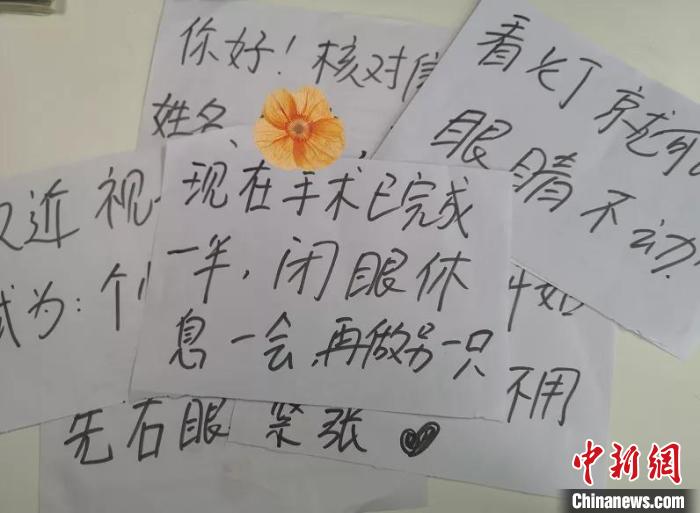 你好！核对信
姓名、
看灯就可
眼睛不动
双近视
式为：个
现在手术已完成
一半，闭眼休
息一会，再做另一只
先右眼
不用
紧张
中新网
Chinanews.com